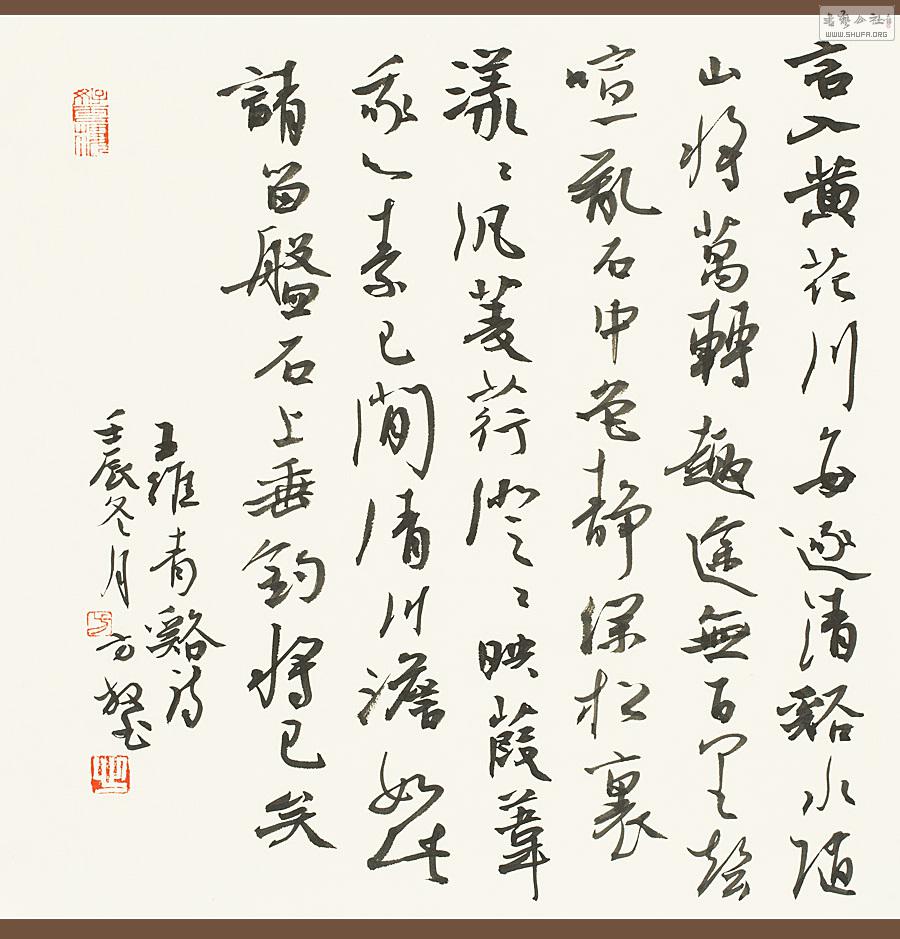 言入黄花川每逐清谿水随
山將萬轉趣途無百里聲
喧亂石中色静深松裏
漾〻汎菱荇澄〻映葭葦
我心素已閒清川澹如此
請留盤石上垂釣將已矣
王維青谿詩
壬辰冬月方
書藝公社
WWW.SHUFA.ORG